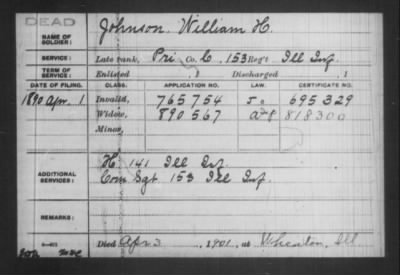 DEAD
NAME OF SOLDIER: Johnson William H.
SERVICE: Late rank, Pri Co. C, 153 Reg't Ill Inf.
TERM OF SERVICE: Enlisted , 1 Discharged , 1
DATE OF FILING. CLASS. APPLICATION NO. LAW. CERTIFICATE NO.
1890 Apr. 1 Invalid, 765754 695329
Widow, 890567 818300
Minor,
ADDITIONAL SERVICES: H. 141 Ill Inf.
Com Sgt 153 Ill Inf.
REMARKS:
Died Apr 3, 1901, at Wheaton, Ill